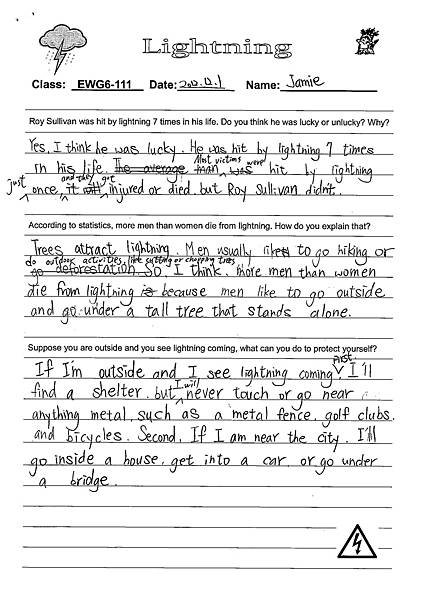 Lightning
Class: EWG6-111 Date: Name: Jamie
Roy Sullivan was hit by lightning 7 times in his life. Do you think he was lucky or unlucky? Why?
Yes, I think he was lucky. He was hit by lightning 7 times
Most victims were
in his life. The average man was hit by lightning
just and they got
once, it injured or died, but Roy Sullivan didn't.
According to statistics, more men than women die from lightning. How do you explain that?
Trees attract lightning. Men usually like to go hiking or
do outdoor activities, like cutting or chopping trees
go deforestation. So, I think, more men than women
die from lightning is because men like to go outside
and go under a tall tree that stands alone.
Suppose you are outside and you see lightning coming, what can you do to protect yourself?
First.
If I'm outside and I see lightning coming, I'll
I will
find a shelter, but never touch or go near
anything metal, such as a metal fence, golf clubs,
and bicycles. Second, If I am near the city, I'll
go inside a house, get into a car, or go under
a bridge.